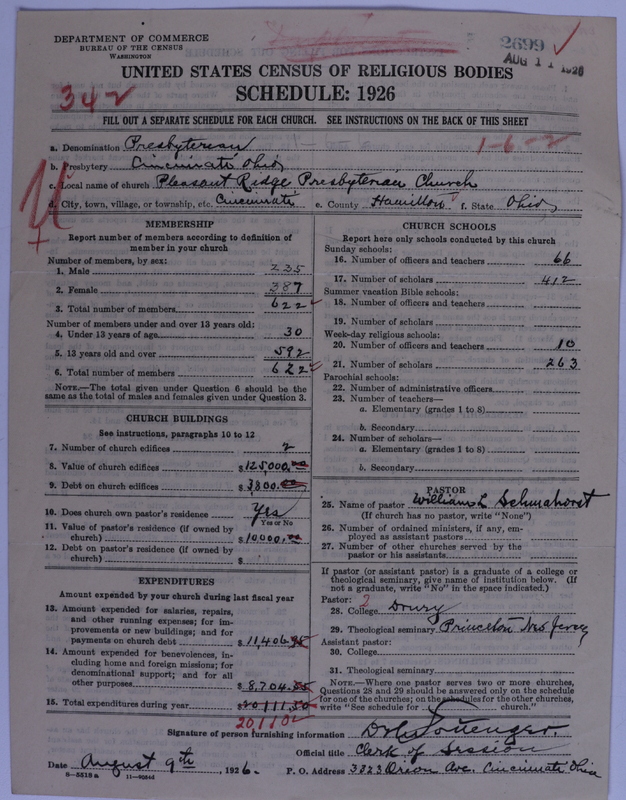 DEPARTMENT OF COMMERCE
BUREAU OF THE CENSUS
WASHINGTON
2699
AUG 11 1926
UNITED STATES CENSUS OF RELIGIOUS BODIES
SCHEDULE: 1926
342
FILL OUT A SEPARATE SCHEDULE FOR EACH CHURCH. SEE INSTRUCTIONS ON THE BACK OF THIS SHEET
1-6-2
a. Denomination Presbyterian
b. Presbytery Cincinnati Ohio
c. Local name of church Pleasant Ridge Presbyterian Church
d. City, town, village, or township, etc. Cincinnati e. County Hamilton f. State Ohio
MEMBERSHIP
Report number of members according to definition of
member in your church
Number of members, by sex:
1. Male 235
2. Female 387
3. Total number of members 622
Number of members under and over 13 years old:
4. Under 13 years of age 30
5. 13 years old and over 592
6. Total number of members 622
NOTE.—The total given under Question 6 should be
same as the total of males and females given under Question 3.
CHURCH BUILDINGS
See instructions, paragraphs 10 to 12
7. Number of church edifices 2
8. Value of church edifices $125,000.00
9. Debt on church edifices $3800.00
10. Does church own pastor's residence Yes
Yes or No
11. Value of pastor's residence (if owned by
church) $10000.00
12. Debt on pastor's residence (if owned by
church) $
EXPENDITURES
Amount expended by your church during last fiscal year
13. Amount expended for salaries, repairs,
and other running expenses; for im-
provements or new buildings; and for
payments on church debt $11,406.95
14. Amount expended for benevolences, in-
cluding home and foreign missions; for
denominational support; and for all
other purposes $8,704.55
15. Total expenditures during year $20111.50
20110
CHURCH SCHOOLS
Report here only schools conducted by this church
Sunday schools:
16. Number of officers and teachers 66
17. Number of scholars 412
Summer vacation Bible schools:
18. Number of officers and teachers
19. Number of scholars
Week-day religious schools:
20. Number of officers and teachers 10
21. Number of scholars 263
Parochial schools:
22. Number of administrative officers
23. Number of teachers—
a. Elementary (grades 1 to 8)
b. Secondary
24. Number of scholars—
a. Elementary (grades 1 to 8)
b. Secondary
PASTOR
25. Name of pastor William L Schmahorst
(If church has no pastor, write "None")
26. Number of ordained ministers, if any, em-
ployed as assistant pastors
27. Number of other churches served by the
pastor or his assistants
If pastor (or assistant pastor) is a graduate of a college or
theological seminary, give name of institution below. (If
not a graduate, write "No" in the space indicated.)
Pastor: 2
28. College Drury
29. Theological seminary Princeton New Jersey
Assistant pastor:
30. College
31. Theological seminary
NOTE.—Where one pastor serves two or more churches,
Questions 28 and 29 should be answered only on the schedule
for one of the churches; on the schedules for the other churches,
write "See schedule for church."
Signature of person furnishing information
Official title Clerk of Session
Date August 9th, 1926. P. O. Address 3323 Orion Ave. Cincinnati Ohio
8—5318a 11—9084d